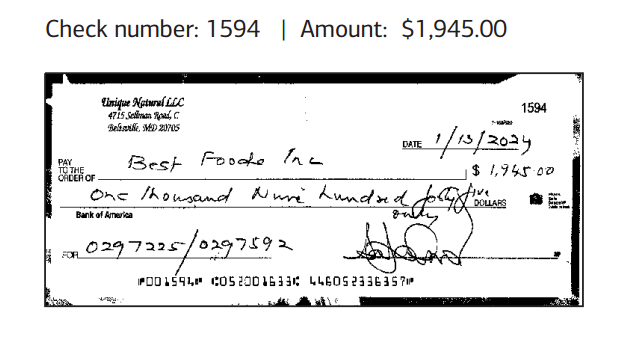 Check number: 1594 | Amount: $1,945.00
Unique Natural LLC
4715 Sellman Road, C
Beltsville, MD 20705
1594
DATE 1/13/2024
PAY TO THE ORDER OF Best Foods Inc $ 1,945.00
One Thousand Nine hundred forty five only DOLLARS
Bank of America
FOR 0297225/0297592
⑈001594⑈ ⑆052001633⑆ 446052336357⑈